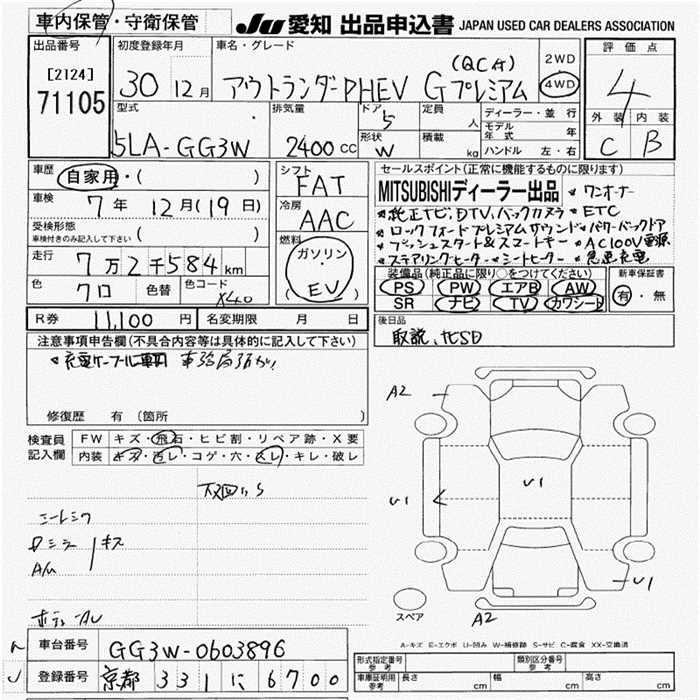 車内保管・守衛保管 JU 愛知 出品申込書 JAPAN USED CAR DEALERS ASSOCIATION
出品番号 初度登録年月 車名・グレード 評価点
[2124] 30 12月 アウトランダーPHEV Gプレミアム 2WD
71105 4WD 4
型式 排気量 ドア 定員 ディーラー・並行 外装 内装
5LA-GG3W 2400cc 5 人 モデル年式 年 C B
形状 積載 ハンドル 左・右
W kg
車歴 自家用・( ) シフト FAT セールスポイント(正常に機能するものに限ります)
車検 7年 12月(19日) 冷房 AAC MITSUBISHIディーラー出品 *ワンオーナー
受検形態 *純正ナビ、DTV、バックカメラ *ETC
車検付きのみ記入して下さい ( ) 燃料 *ロックフォードプレミアムサウンド *パワーバックドア
走行 7万2千584km ガソリン *プッシュスタート&スマートキー *AC100V電源
(EV) *ステアリングヒーター *シートヒーター *急速充電
色 クロ 色替 色コード X40 装備品(純正品に限り○をつけてください) 新車保証書
PS PW エアB AW 有・無
SR ナビ TV カワシート
R券 11,100円 名変期限 月 日 後日品
注意事項申告欄(不具合内容等は具体的に記入して下さい) 取説、ナビSD
修復歴 有 (箇所 )
検査員記入欄 FW キズ・飛石・ヒビ割・リペア跡・X要
内装 キズ・汚レ・コゲ・穴・スレ・キレ・破レ
A2
U1
U1
U1
スペア A2
A-キズ E-エクボ U-凹み W-補修跡 S-サビ C-腐食 XX-交換済
車台番号 GG3W-0603896
登録番号 京都 331 に 6700
形式指定番号 参考 類別区分番号 参考
車庫証明用 参考 長さ cm 幅 cm 高さ cm